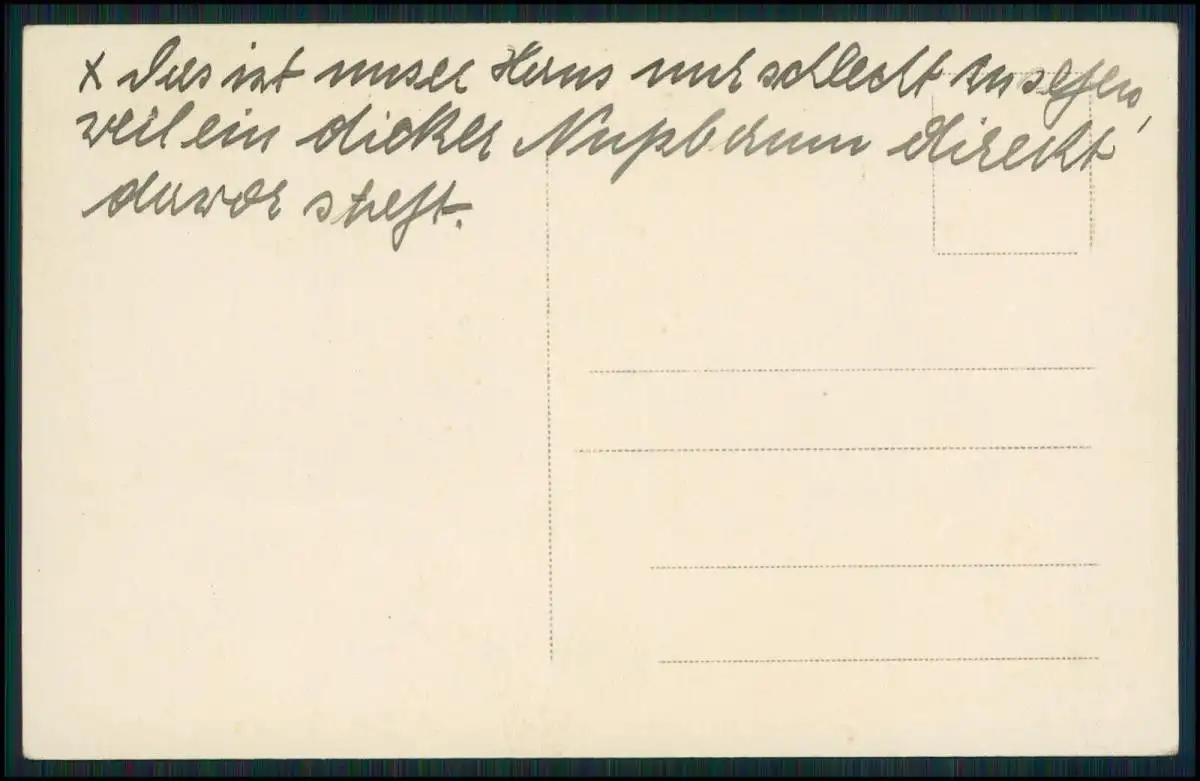 x Dies ist unser Haus nur schlecht zu sehen,
weil ein dicker Nußbaum direkt
davor steht.